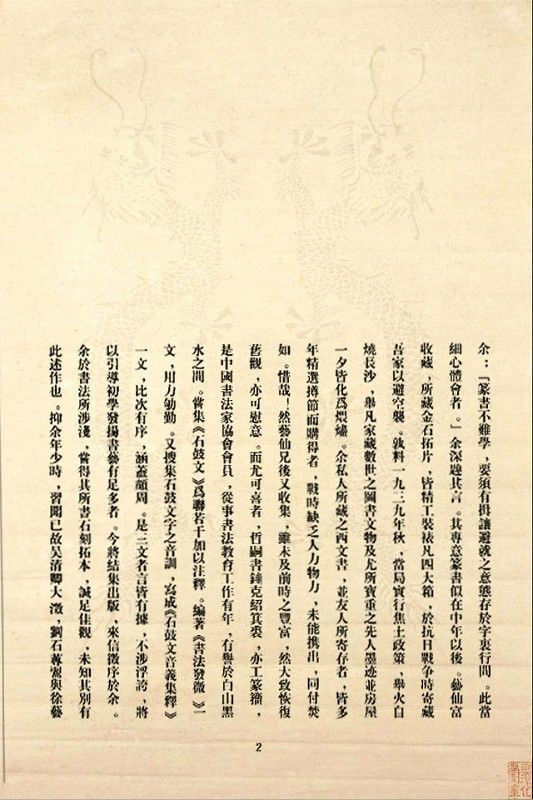 余：『篆書不難學，要須有揖讓避就之意態存於字裏行間。此當
細心體會者。』余深題其言。其專意篆書似在中年以後。藝仙富
收藏，所藏金石拓片，皆精工裝裱凡四大箱，於抗日戰爭時寄藏
吾家以避空襲。孰料一九三九年秋，當局實行焦土政策，舉火自
燒長沙，舉凡家藏數世之圖書文物及尤所寶重之先人墨迹並房屋
一夕皆化爲煨燼。余私人所藏之西文書，並友人所寄存者，皆多
年精選撙節而購得者，戰時缺乏人力物力，未能携出，同付焚
如。惜哉！然藝仙兄後又收集，雖未及前時之豐富，然大致恢復
舊觀，亦可慰意。而尤可喜者，哲嗣書鋒克紹其裘，亦工篆籀，
是中國書法家協會會員，從事書法教育工作有年，有譽於白山黑
水之間。嘗集《石鼓文》爲聯若干加以注釋。編著《書法發微》一
文，用力勤勤。又搜集石鼓文字之音訓，寫成《石鼓文音義集釋》
一文，比次有序，涵蓋頗周。是三文者言皆有據，不涉浮誇，將
以引導初學發揚書藝有足多者。今將結集出版，來信徵序於余。
余於書法所涉淺，嘗得其所書石刻拓本，誠足佳觀，未知其別有
此述作也。抑余年少時，習聞已故吴清卿大澂，劉石菴墉與徐藝
2